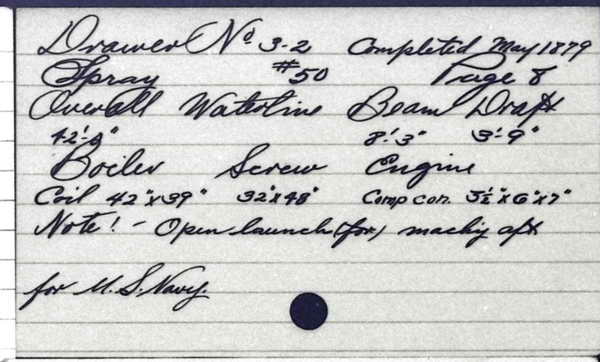 Drawer No 3-2 Completed May 1879
Spray #50 Page 8
Overall Waterline Beam Draft
42'-0" 8'-3" 3'-9"
Boiler Screw Engine
Coil 42"x39" 32"x48" Comp con. 3½"x6"x7"
Note! - Open launch (for) machiy aft
for U.S. Navy.